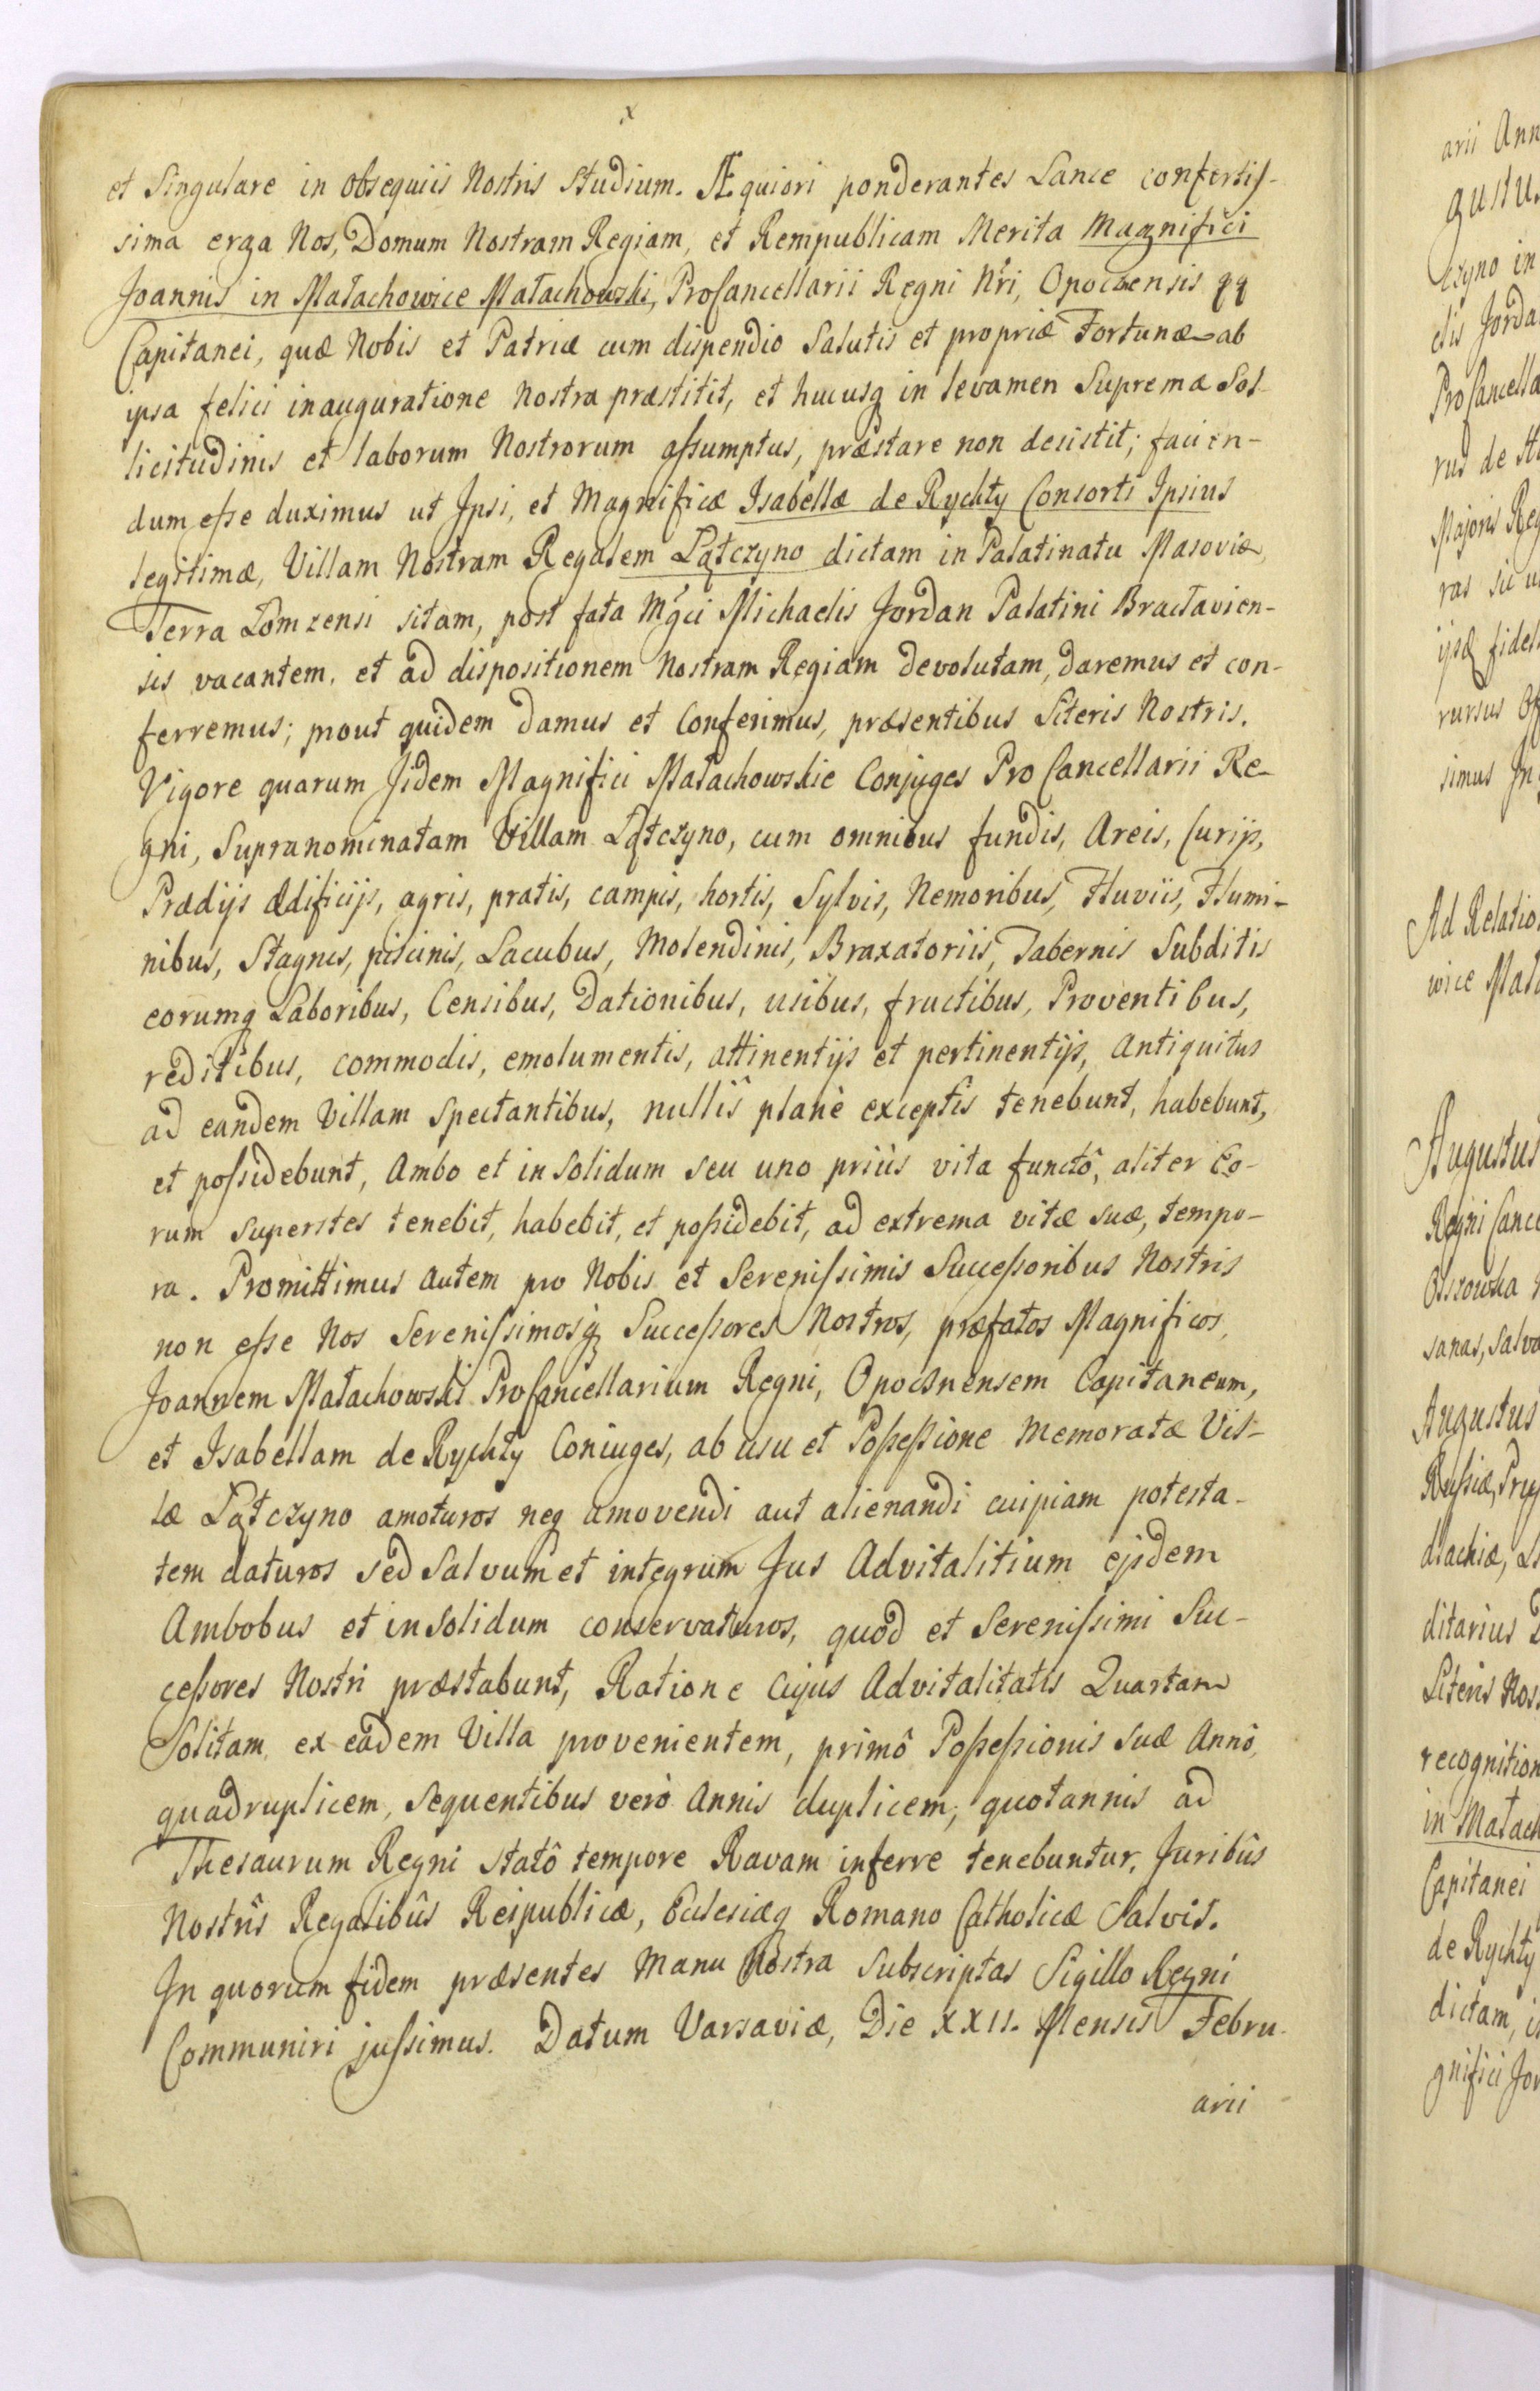 et Singulare in obsequiis Nostris Studium. Æquiori ponderantes Lance confertis-
sima erga Nos, Domum Nostram Regiam, et Rempublicam Merita Magnifici
Joannis in Małachowice Małachowski, ProCancellarii Regni Nri, Opocznensis qq
Capitanei, quæ Nobis et Patriæ cum dispendio Salutis et propriæ Fortunæ ab
ipsa felici inauguratione Nostra præstitit, et hucusq in levamen Supremæ Sol-
licitudinis et laborum Nostrorum assumptus, præstare non desistit; facien-
dum esse duximus ut Ipsi, et Magnificæ Isabellæ de Rychty Consorti Ipsius
legitimæ, Villam Nostram Regalem Łątczyno dictam in Palatinatu Masoviæ,
Terra Łomzensi sitam, post fata Mgci Michaelis Jordan Palatini Braclavien-
sis vacantem, et ad dispositionem Nostram Regiam devolutam, daremus et con-
ferremus; prout quidem damus et Conferimus, præsentibus Literis Nostris.
Vigore quarum Jidem Magnifici Małachowskie Conjuges ProCancellarii Re-
gni, Supranominatam Villam Łątczyno, cum omnibus fundis, Areis, Curijs,
Prædijs ædificijs, agris, pratis, campis, hortis, Sylvis, Nemoribus, Fluviis, Flumi-
nibus, Stagnis, piscinis, Lacubus, Molendinis, Braxatoriis, Tabernis Subditis
eorumq Laboribus, Censibus, Dationibus, usibus, fructibus, Proventibus,
reditibus, commodis, emolumentis, attinentijs et pertinentijs, Antiquitus
ad eandem Villam Spectantibus, nullîs planè exceptis tenebunt, habebunt,
et possidebunt, Ambo et in Solidum seu uno priùs vita functô, aliter Eo-
rum superstes tenebit, habebit, et possidebit, ad extrema vitæ suæ, tempo-
ra. Promittimus autem pro Nobis et Serenissimis Successoribus Nostris
non esse Nos Serenissimosq Successores Nostros, præfatos Magnificos,
Joannem Małachowski ProCancellarium Regni, Opocznensem Capitaneum,
et Isabellam de Rychty Coniuges, ab usu et Possessione Memoratæ Vil-
læ Łątczyno amoturos neq amovendi aut alienandi cuipiam potesta-
tem daturos sed Salvum et integrum Jus Advitalitium ejsdem
Ambobus et in Solidum conservaturos, quod et Serenissimi Suc-
cessores Nostri præstabunt, Ratione cujus Advitalitatis Quartam
Solitam, ex eadem Villa provenientem, primô Possessionis suæ Annô,
quadruplicem, Sequentibus verò Annis duplicem, quotannis ad
Thesaurum Regni statô tempore Ravam inferre tenebuntur, Juribûs
Nostrîs Regalibûs Reipublicæ, Ecclesiæq Romano Catholicæ Salvis.
In quorum fidem præsentes Manu Nostra Subscriptas Sigillo Regni
Communiri jussimus. Datum Varsaviæ, Die XXII. Mensis Febru-
arii